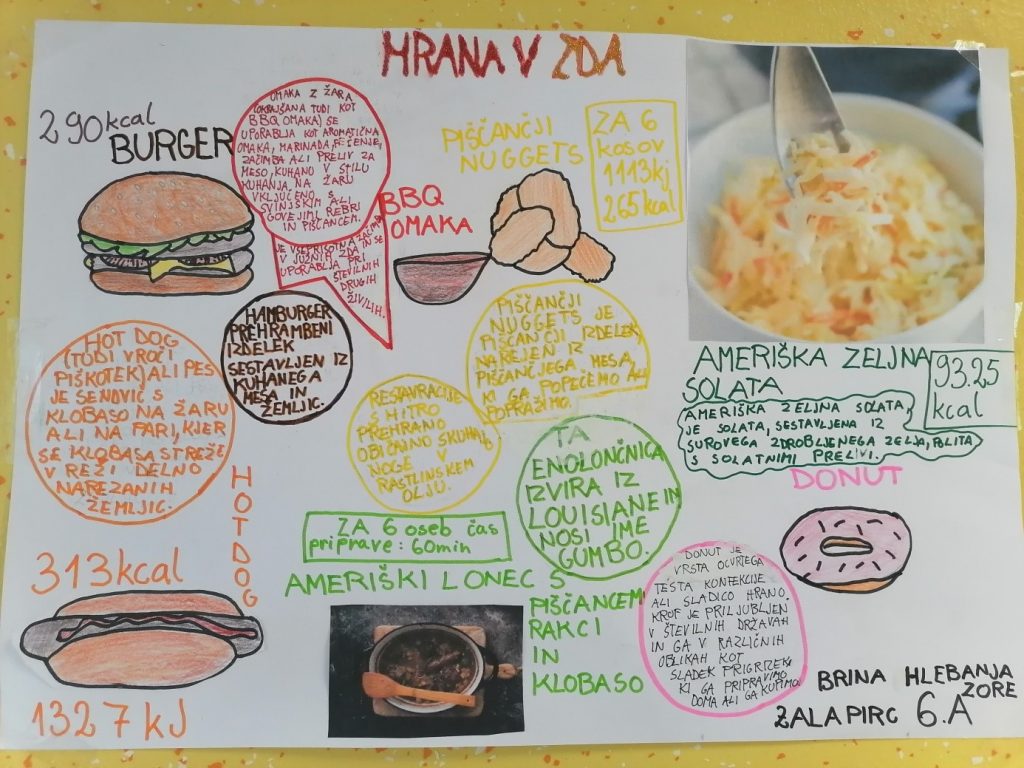 HRANA V ZDA
290kcal
BURGER
OMAKA Z ŽARA
(OKRAJŠANA TUDI KOT
BBQ OMAKA) SE
UPORABLJA KOT AROMATIČNA
OMAKA, MARINADA, PEČENJE,
ZAČIMBA ALI PRELIV ZA
MESO, KUHANO V STILU
KUHANJA NA ŽARU
VKLJUČENO S
SVINJSKIMI ALI
GOVEJIMI REBRI
IN PIŠČANCEM.
JE VSEPRISOTNA ZAČIMBA
V JUŽNIH ZDA IN SE
UPORABLJA PRI
ŠTEVILNIH
DRUGIH
ŽIVILIH.
BBQ
OMAKA
PIŠČANČJI
NUGGETS
ZA 6
kosov
1113kj
265kcal
HAMBURGER
PREHRAMBENI
IZDELEK
SESTAVLJEN IZ
KUHANEGA
MESA IN
ŽEMLJIC.
PIŠČANČJI
NUGGETS JE
PIŠČANČJI IZDELEK,
NAREJEN IZ
PIŠČANČJEGA MESA,
KI GA POPEČEMO ALI
POPRAŽIMO.
RESTAVRACIJE
S HITRO
PREHRANO
OBIČAJNO SKUHAJO
NOGE V
RASTLINSKEM
OLJU.
AMERIŠKA ZELJNA
SOLATA
93.25
kcal
AMERIŠKA ZELJNA SOLATA,
JE SOLATA, SESTAVLJENA IZ
SUROVEGA ZDROBLJENEGA ZELJA, POLITA
S SOLATNIMI PRELIVI.
HOT DOG
(TUDI VROČI
PIŠKOTEK) ALI PES
JE SENDVIČ S
KLOBASO NA ŽARU
ALI NA PARI, KJER
SE KLOBASA STREŽE
V REŽI DELNO
NAREZANIH
ŽEMLJIC.
HOT DOG
313kcal
1327 kJ
TA
ENOLONČNICA
IZVIRA IZ
LOUISIANE IN
NOSI IME
GUMBO.
ZA 6 oseb čas
priprave: 60min
AMERIŠKI LONEC S
PIŠČANCEM
RAKCI
IN
KLOBASO
DONUT
DONUT JE
VRSTA OCVRTEGA
TESTA KONFEKCIJE
ALI SLADICO HRANO.
KROF JE PRILJUBLJEN
V ŠTEVILNIH DRŽAVAH
IN GA V RAZLIČNIH
OBLIKAH KOT
SLADEK PRIGRIZEK,
KI GA PRIPRAVIMO
DOMA ALI GA KUPIMO.
BRINA HLEBANJA
ZORE
ŽALA PIRC 6.A